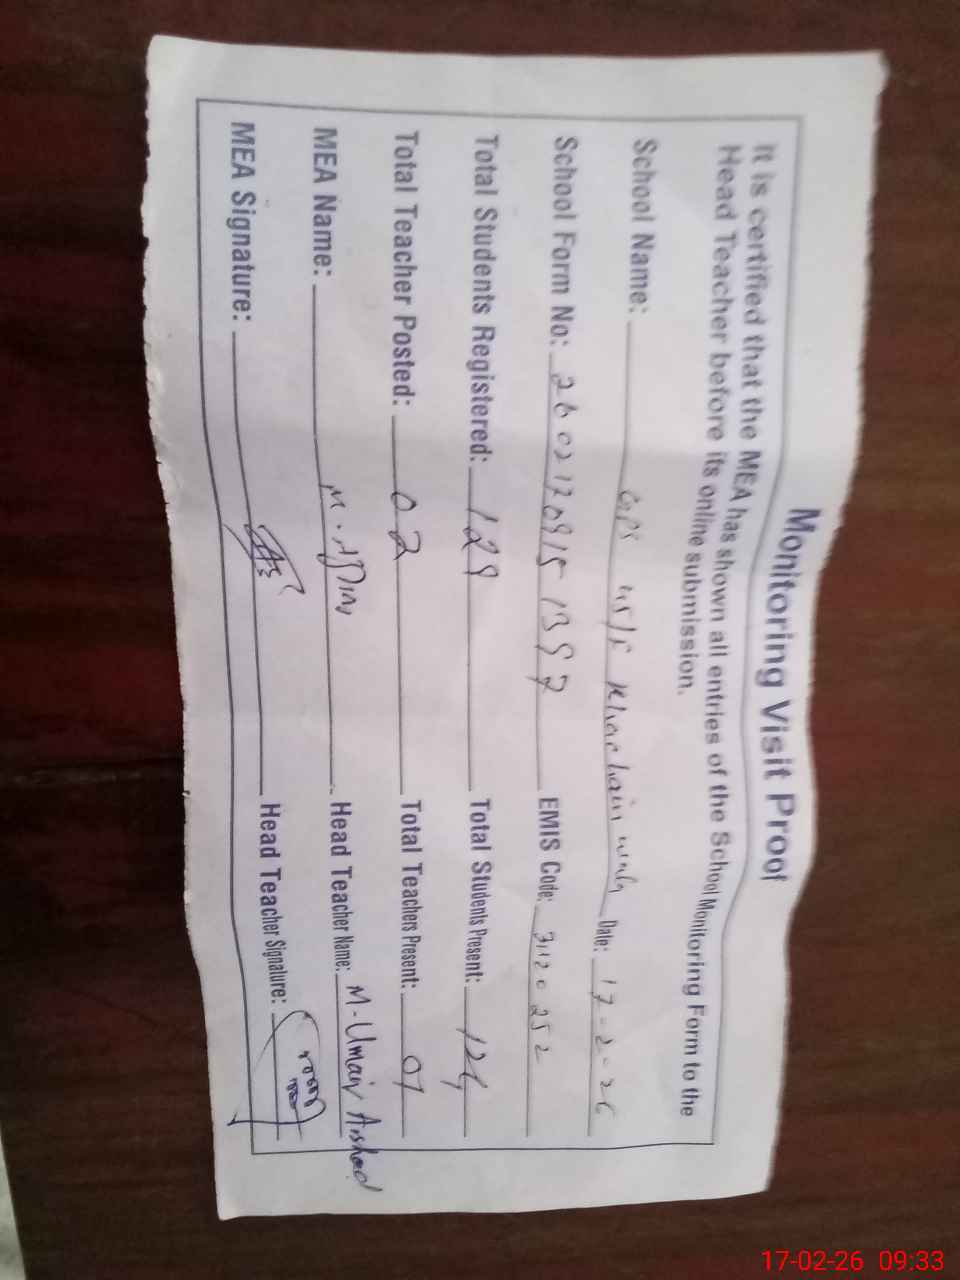 Monitoring Visit Proof
It is certified that the MEA has shown all entries of the School Monitoring Form to the
Head Teacher before its online submission.
School Name: GPS 45/F Date: 17-2-26
School Form No: EMIS Code: 31120252
Total Students Registered: 129 Total Students Present: 124
Total Teacher Posted: 02 Total Teachers Present: 01
MEA Name: Head Teacher Name: M-Umair Arshad
MEA Signature: Head Teacher Signature:
17-02-26 09:33